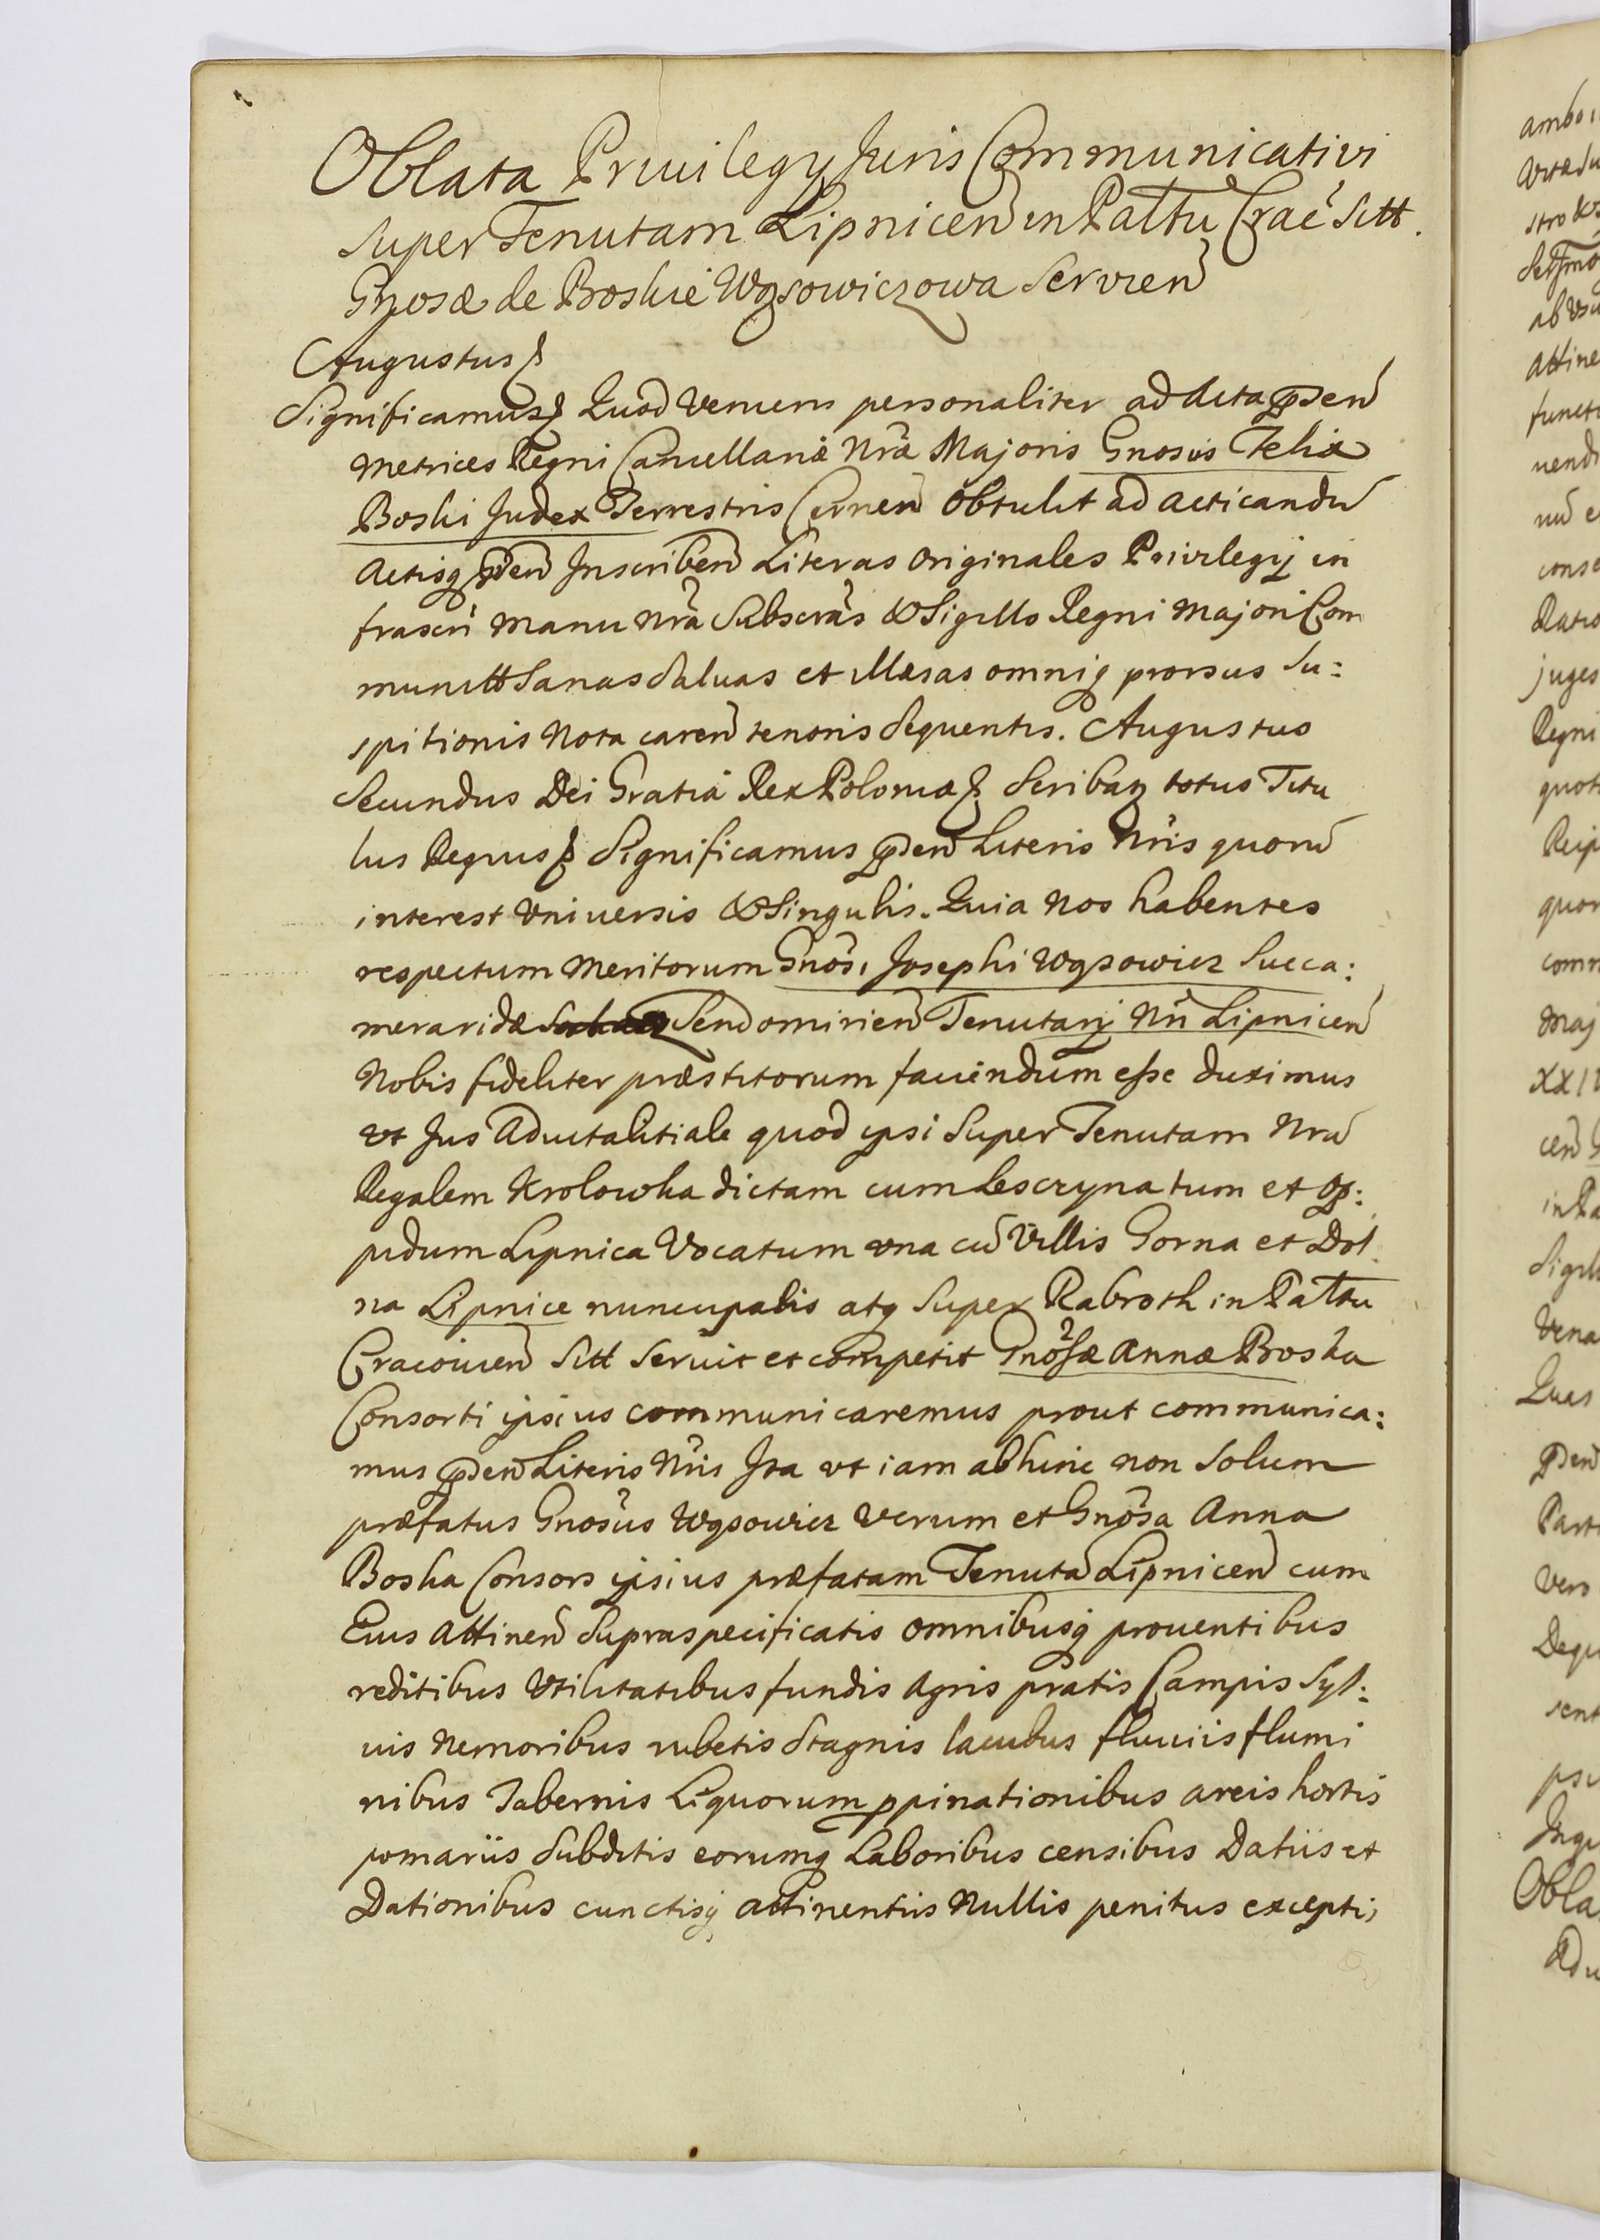 Oblata Priuilegy Juris Communicativi
super Tenutam Lipnicen̄ in Pałtu Crac̄ Sitt.
Gnosæ de Boskie Wąsowiczowa Servien̄
Augustus
Significamus Quod veniens personaliter ad Acta p̄sen̄
Metrices Regni Cancellariæ Nr̄æ Majoris Gnosus Felix
Boski Judex Terrestris Cernen̄ obtulit ad acticandū
Actisq p̄sen̄ Inscriben̄ Literas originales Privilegij in
frascri Manu Nr̄a Subscrās & Sigillo Regni majori Com
munitt Sanas Saluas et illæsas omniq prorsus Su:
spitionis Nota caren̄ tenoris sequentis. Augustus
Secundus Dei Gratiâ Rex Poloniæ Scribaꝫ totus Titu
lus Regius Significamus p̄sen̄ Literis Nr̄is quorū
interest Vniuersis & Singulis. Quia nos habentes
respectum meritorum Gnosi Josephi Wąsowicz Succa:
meraridæ Sendomirien̄ Tenutarij Nr̄i Lipnicen̄
Nobis fideliter præstitorum fauendum esse duximus
vt Jus Aduitalitiale quod ipsi Super Tenutam Nr̄ā
Regalem Krolowka dictam cum Lescryna tum et Op:
pidum Lipnica Vocatum vna cū Villis Gorna et Dol
na Lipnice nuncupatis atq Super Rabroth in Pałtu
Cracouien̄ Sitt Seruit et competit Gnosæ Annæ Boska
Consorti ipsius communicaremus prout communica:
mus p̄sen̄ Literis Nr̄is Ita vt iam abhinc non Solum
præfatus Gnosus Wąsowicz Verum et Gnosa Anna
Boska Consors ipsius præfatam Tenutā Lipnicen̄ cum
Eius Attinen̄ Supraspecificatis omnibusq prouentibus
reditibus Vtilitatibus fundis Agris pratis Campis Syl:
uis Nemoribus rubetis Stagnis lacubus fluuiis flumi
nibus Tabernis Liquorum ꝓpinationibus areis hortis
pomariis Subditis eorumq Laboribus censibus Datiis et
Dationibus cunctisq attinentiis Nullis penitus exceptis